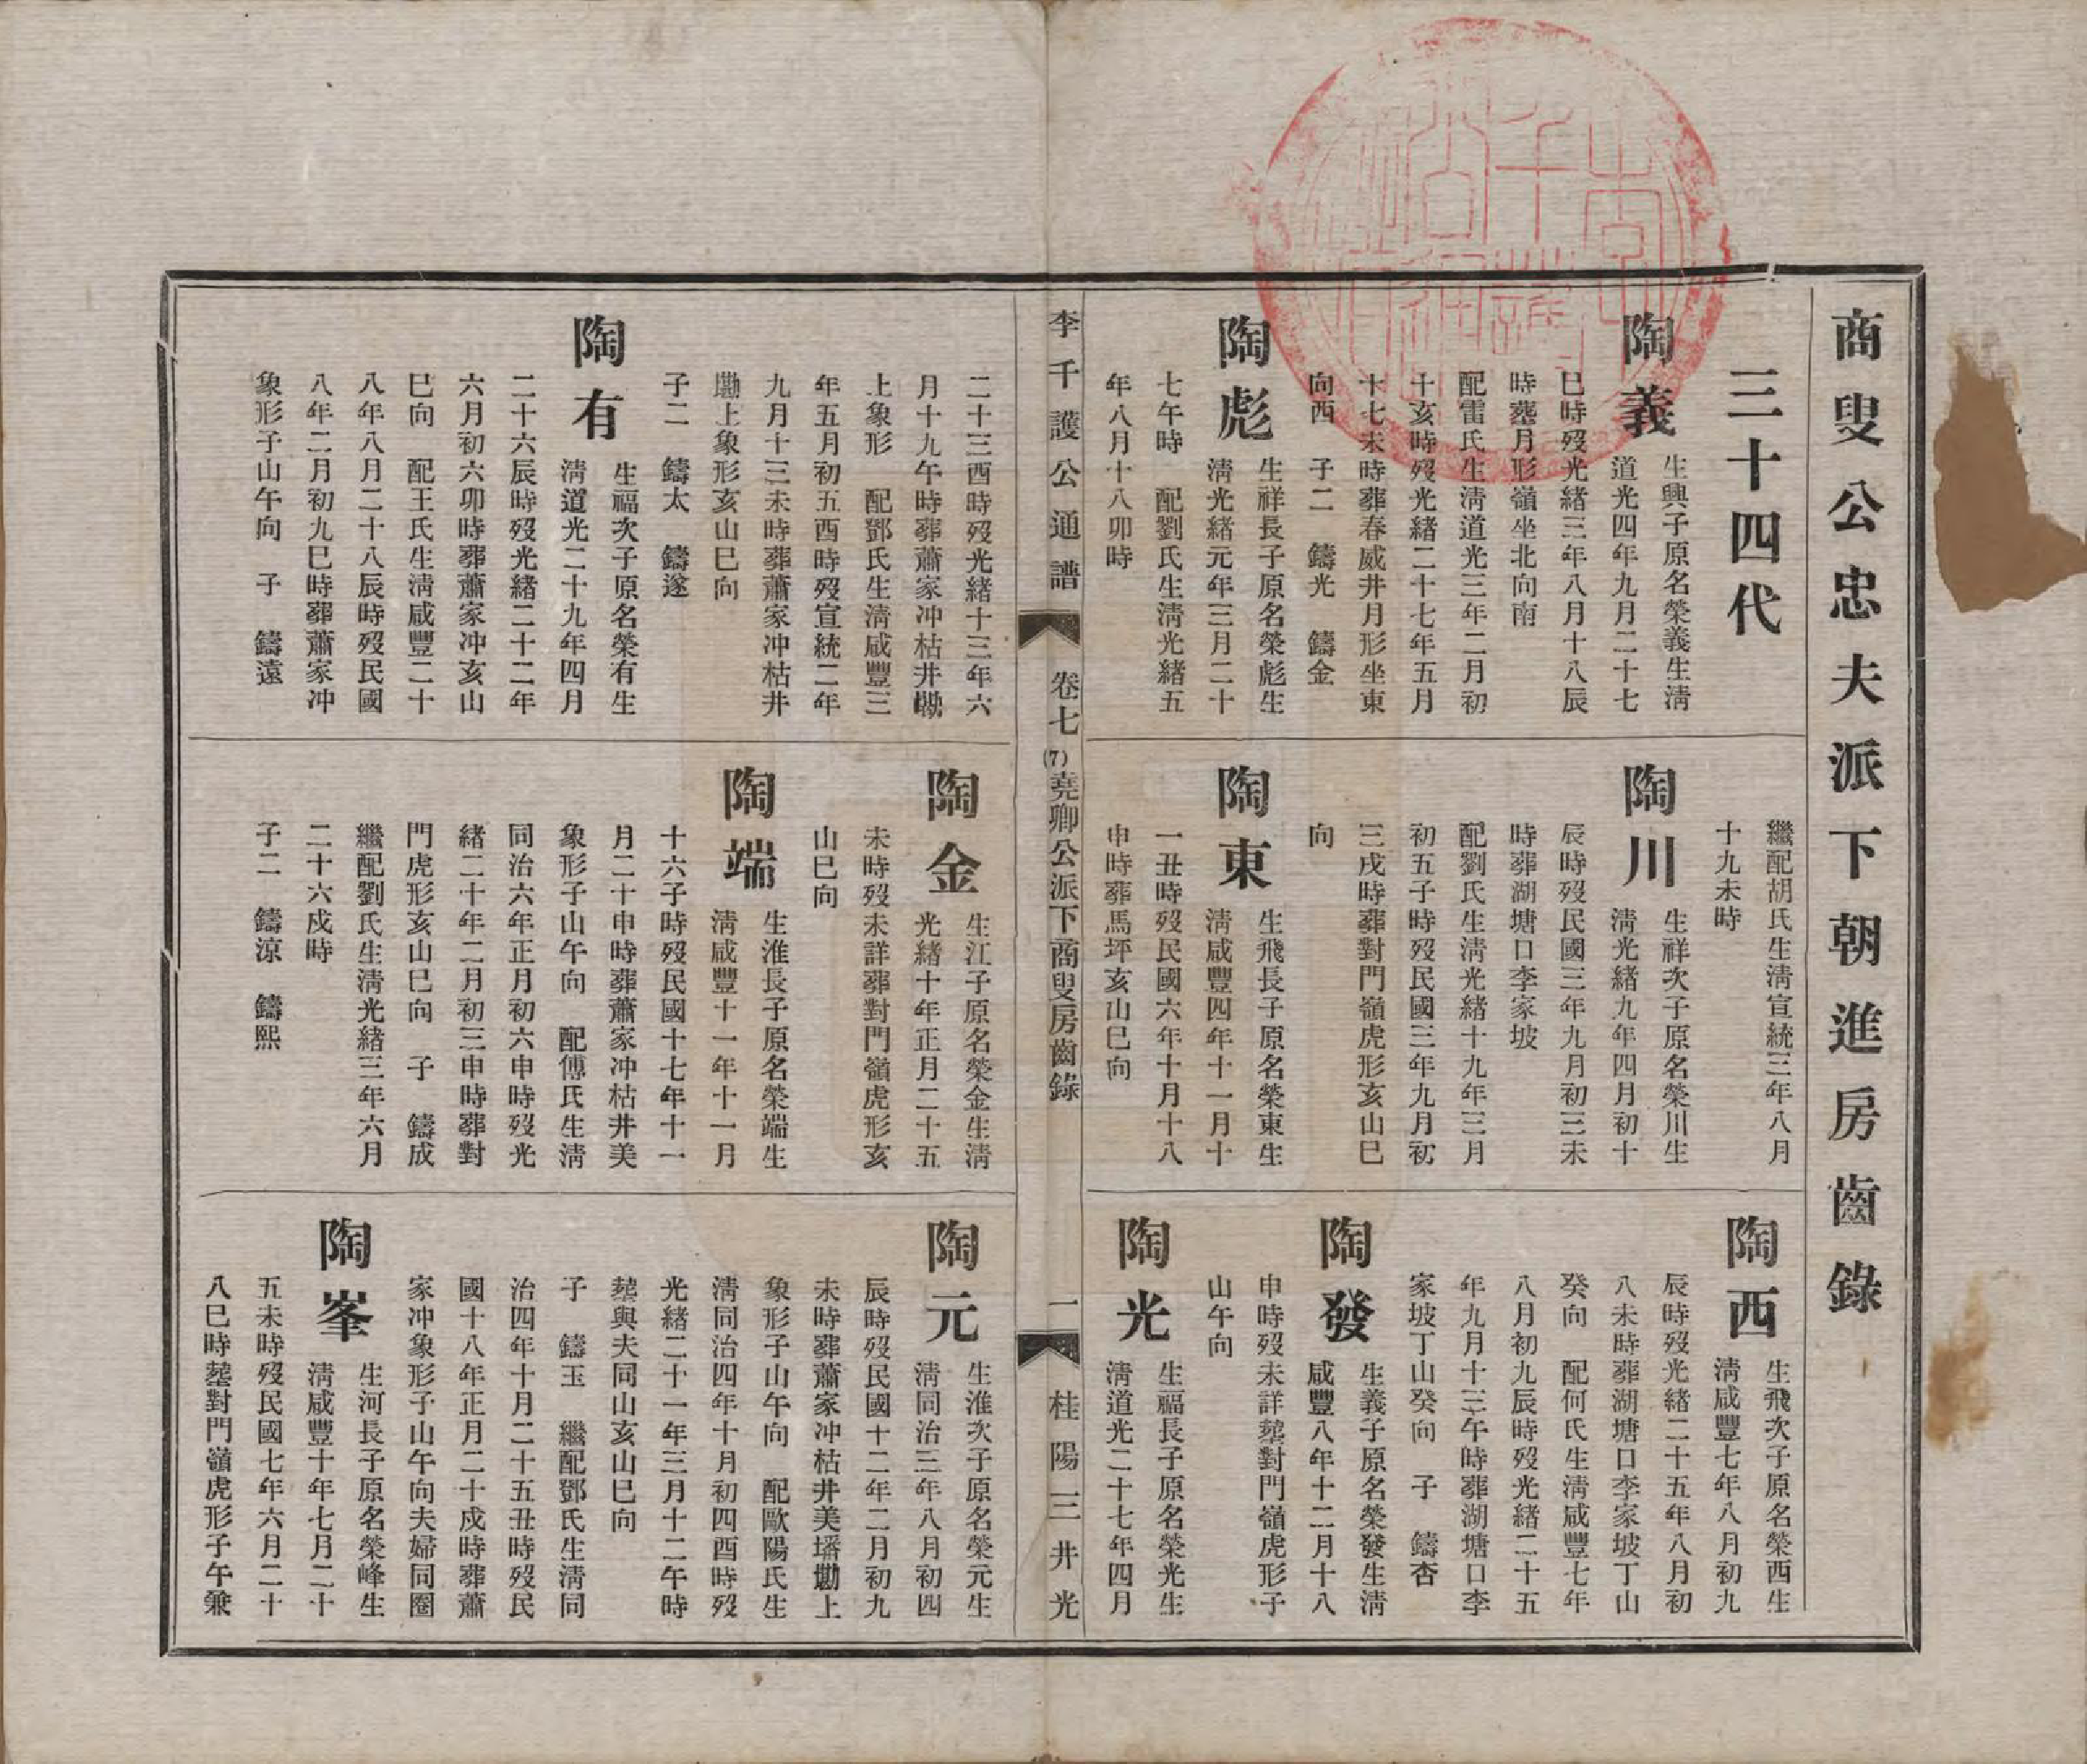 商叟公忠夫派下朝進房齒錄
三十四代
陶義
生興子原名榮義生淸
道光四年九月二十七
巳時歿光緒三年八月十八辰
時塟月形嶺坐北向南
配雷氏生淸道光三年二月初
十亥時歿光緒二十七年五月
十七未時葬春威井月形坐東
向西　子二　鑄光　鑄金
陶彪
生祥長子原名榮彪生
淸光緒元年三月二十
七午時　配劉氏生淸光緒五
年八月十八卯時
繼配胡氏生淸宣統三年八月
十九未時
陶川
生祥次子原名榮川生
淸光緒九年四月初十
辰時歿民國三年九月初三未
時葬湖塘口李家坡
配劉氏生淸光緒十九年三月
初五子時歿民國三年九月初
三戌時葬對門嶺虎形亥山巳
向
陶東
生飛長子原名榮東生
淸咸豐四年十一月十
一丑時歿民國六年十月十八
申時葬馬坪亥山巳向
陶西
生飛次子原名榮西生
淸咸豐七年八月初九
辰時歿光緒二十五年八月初
八未時葬湖塘口李家坡丁山
癸向　配何氏生淸咸豐七年
八月初九辰時歿光緒二十五
年九月十三午時葬湖塘口李
家坡丁山癸向　子　鑄杏
陶發
生義子原名榮發生淸
咸豐八年十二月十八
申時歿未詳塟對門嶺虎形子
山午向
陶光
生福長子原名榮光生
淸道光二十七年四月
李千護公通譜
卷七
(7)堯卿公派下商叟房齒錄
一
桂陽三井光
二十三酉時歿光緒十三年六
月十九午時葬蕭家冲枯井墈
上象形　配鄧氏生淸咸豐三
年五月初五酉時歿宣統二年
九月十三未時葬蕭家冲枯井
墈上象形亥山巳向
子二　鑄太　鑄遂
陶有
生福次子原名榮有生
淸道光二十九年四月
二十六辰時歿光緒二十二年
六月初六卯時葬蕭家冲亥山
巳向　配王氏生淸咸豐二十
八年八月二十八辰時歿民國
八年二月初九巳時葬蕭家冲
象形子山午向　子　鑄遠
陶金
生江子原名榮金生淸
光緒十年正月二十五
未時歿未詳葬對門嶺虎形亥
山巳向
陶端
生淮長子原名榮端生
淸咸豐十一年十一月
十六子時歿民國十七年十一
月二十申時葬蕭家冲枯井美
象形子山午向　配傅氏生淸
同治六年正月初六申時歿光
緒二十年二月初三申時葬對
門虎形亥山巳向　子　鑄成
繼配劉氏生淸光緒三年六月
二十六戌時
子二　鑄涼　鑄熙
陶元
生淮次子原名榮元生
淸同治三年八月初四
辰時歿民國十二年二月初九
未時葬蕭家冲枯井美墦墈上
象形子山午向　配歐陽氏生
淸同治四年十月初四酉時歿
光緒二十一年三月十二午時
塟與夫同山亥山巳向
子　鑄玉　繼配鄧氏生淸同
治四年十月二十五丑時歿民
國十八年正月二十戌時葬蕭
家冲象形子山午向夫婦同圈
陶峯
生河長子原名榮峰生
淸咸豐十年七月二十
五未時歿民國七年六月二十
八巳時塟對門嶺虎形子午兼